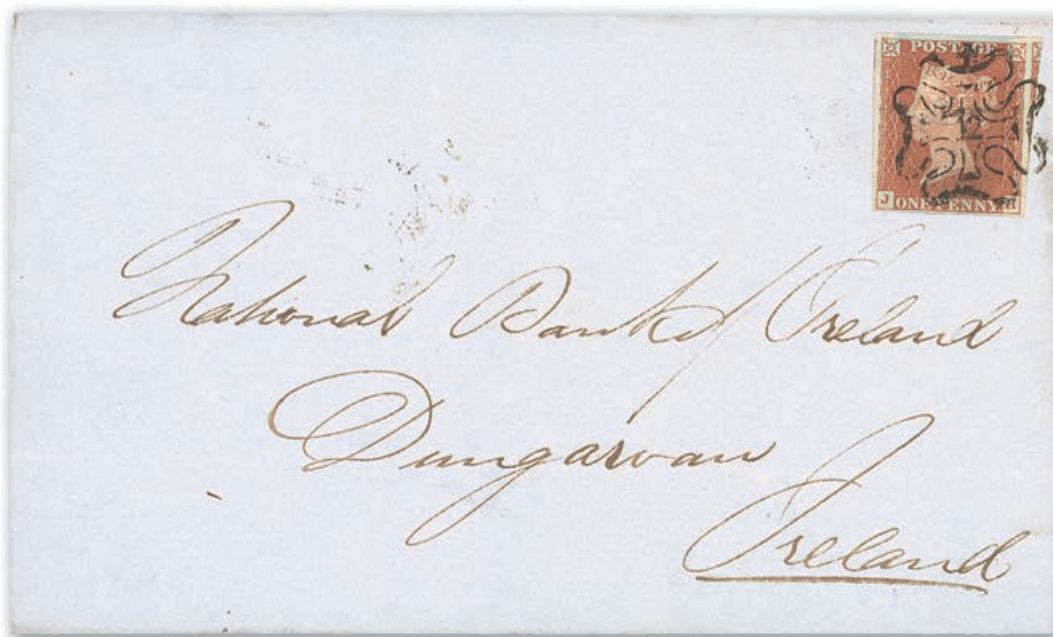 POSTAGE
12
J ONE PENNY H
National Bank of Ireland
Dungarvan
Ireland